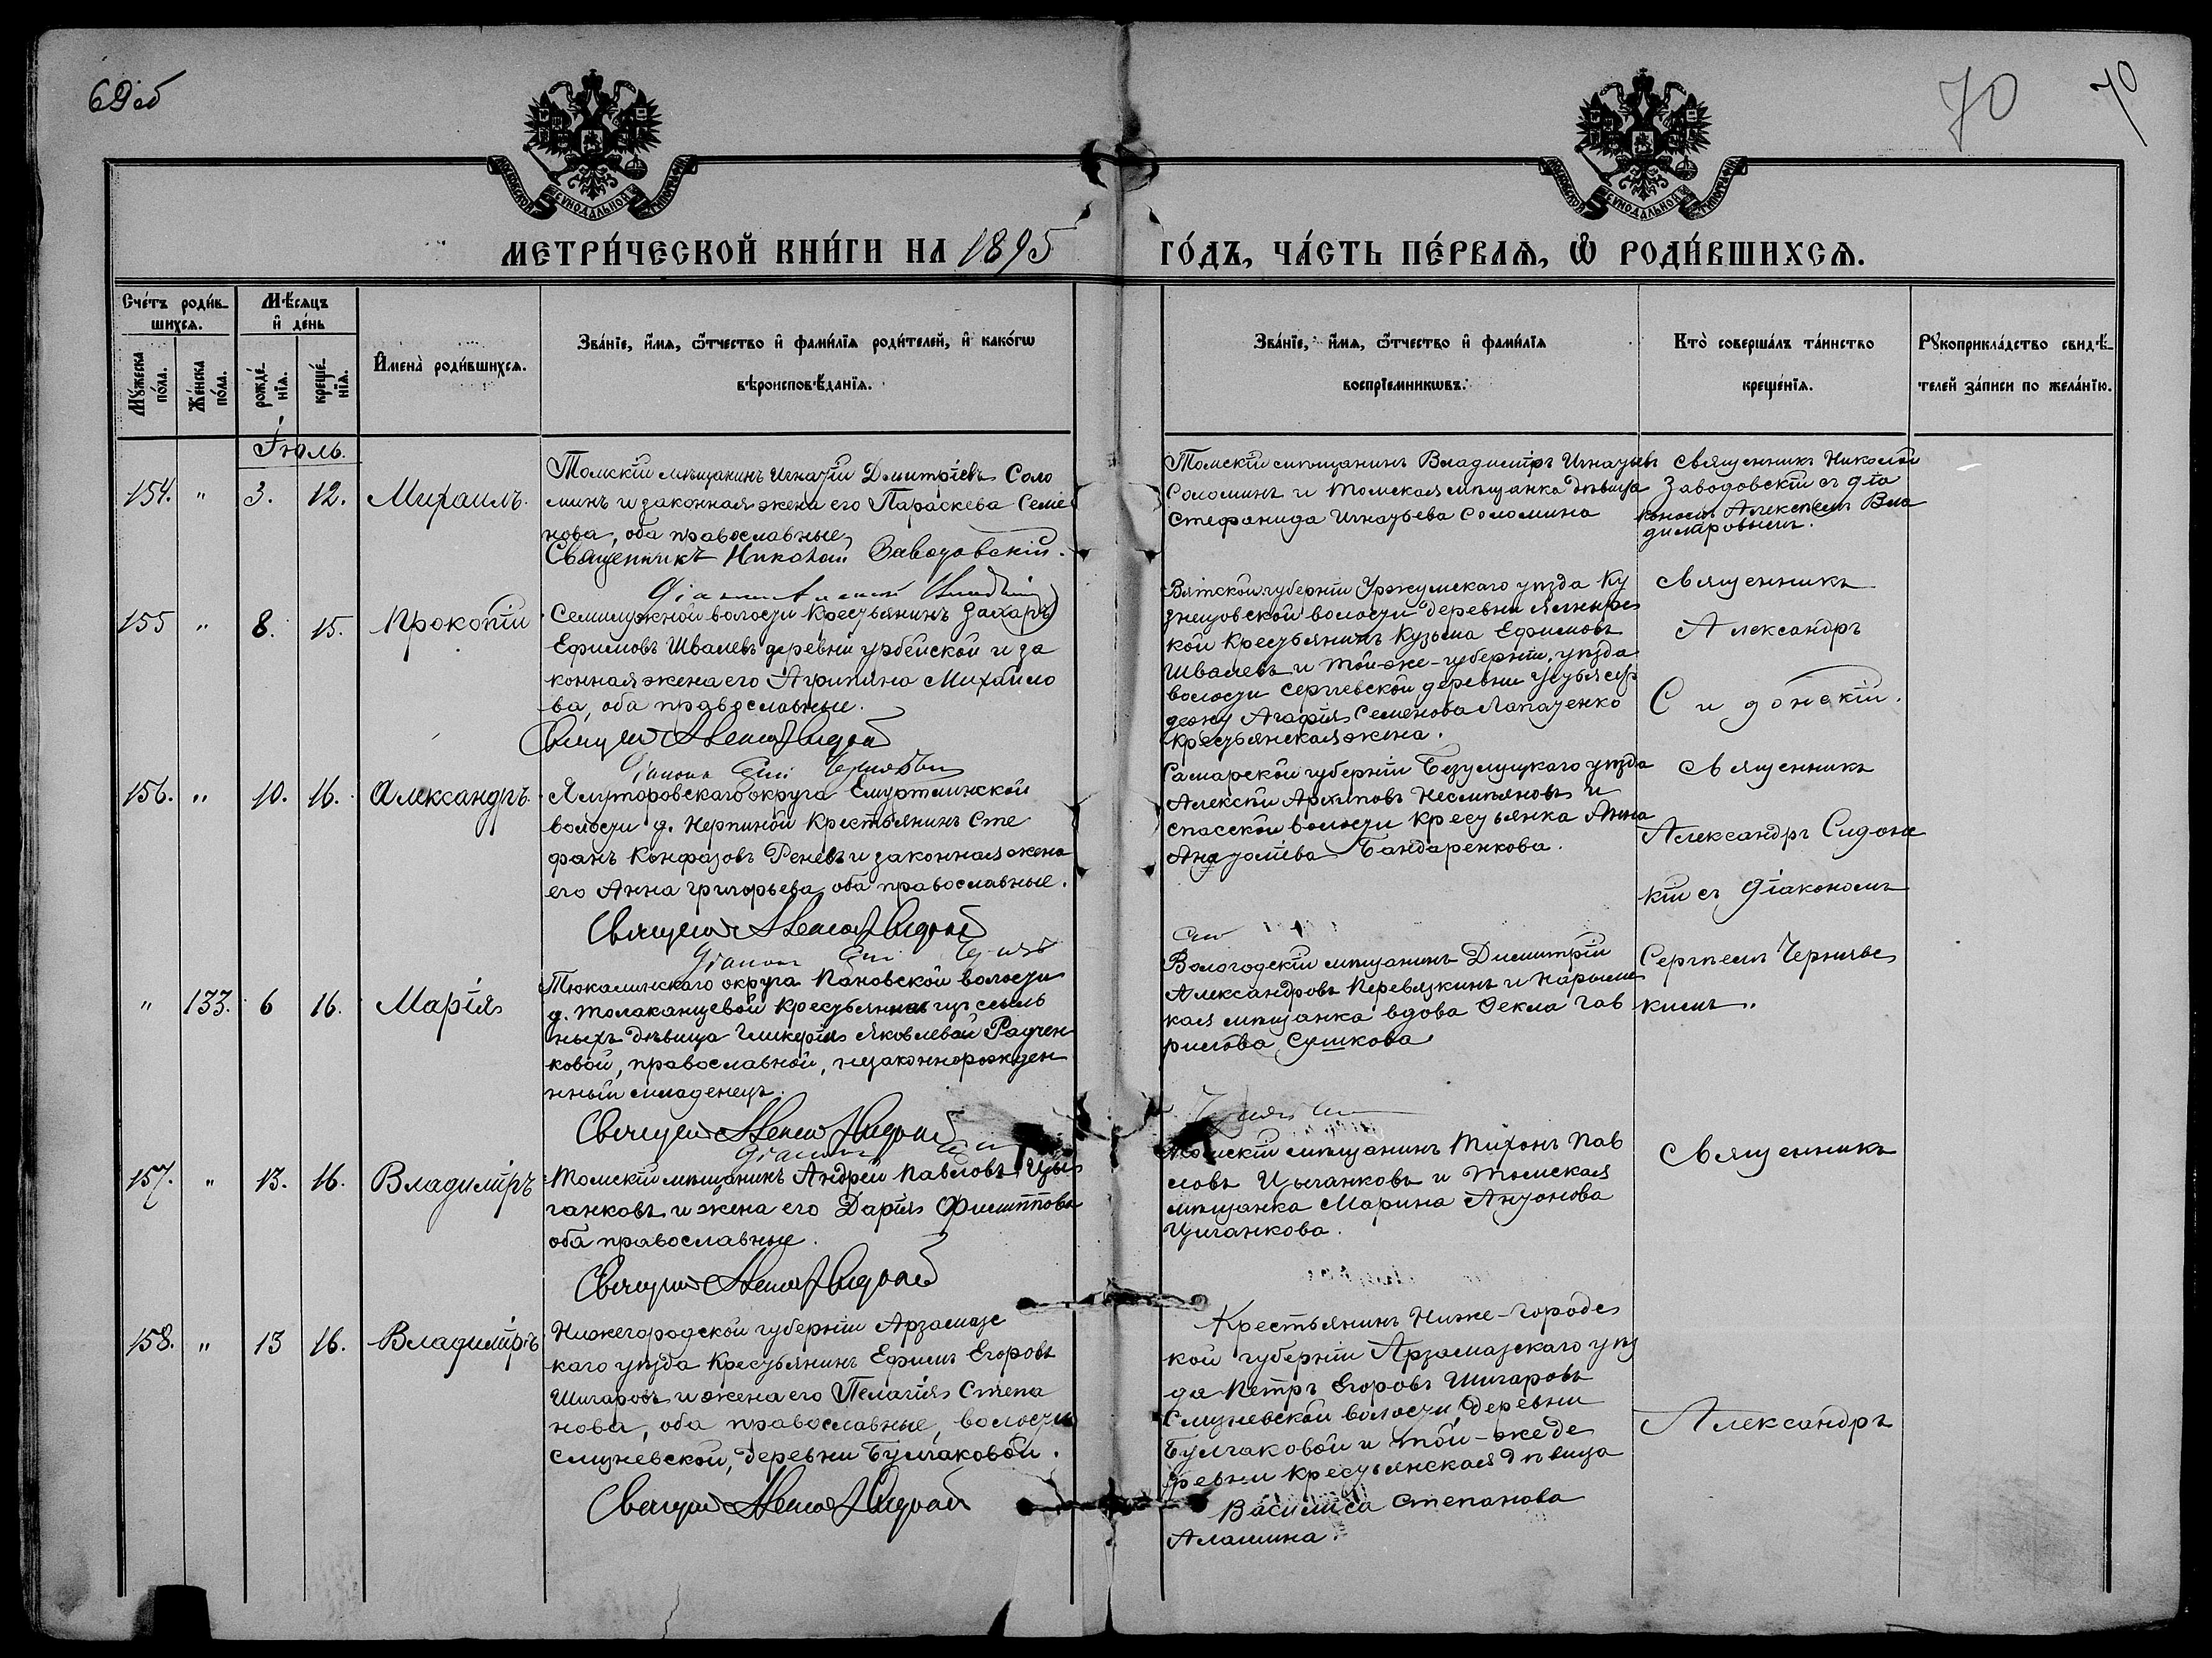 69 об
70
70
МЕТРИ́ЧЕСКОЙ КНИ́ГИ НА 1895 ГО́ДЪ, ЧА́СТЬ ПЕ́РВАѦ, Ѡ҆ РОДИ́ВШИХСѦ.
Сче́тъ роди́в-
шихсѧ.
Мѣ́сѧцъ
и҆ де́нь
Мꙋ́жеска по́ла.
Же́нска по́ла.
рожде́-
нїѧ.
креще́-
нїѧ.
И҆мена̀ роди́вшихсѧ.
Зва́нїе, и҆́мѧ, ѻ҆́тчество и҆ фами́лїѧ роди́телей, и҆ како́гѡ
вѣроисповѣ́данїѧ.
Зва́нїе, и҆́мѧ, ѻ҆́тчество и҆ фами́лїѧ
воспрїе́мникѡвъ.
Кто̀ соверша́лъ та́инство
креще́нїѧ.
Рꙋкоприкла́дство свидѣ́-
телей за́писи по жела́нїю.
Іюль.
154. " 3. 12. Михаилъ.
Томскій мѣщанинъ Игнатій Дмитріевъ Соло
минъ и законная жена его Параскева Семе
нова, оба православные,
Священникъ Николай Заводовскій.
Томскій мѣщанинъ Владиміръ Игнатьевъ
Соломинъ и томская мѣщанка дѣвица
Стефанида Игнатьева Соломина
Священникъ Николай
Заводовскій съ діа
кономъ Алексѣемъ Вла
диміровымъ.
155 " 8. 15. Прокопій
Семилужной волости крестьянинъ Захаръ
Ефимовъ Швалевъ деревни урбейской и за
конная жена его Агрипина Михайло
ва, оба православные.
Вятской губерніи Уржумскаго уѣзда Ку
знецовской волости деревни
кой крестьянинъ Кузьма Ефимовъ
Швалевъ и той-же-губерніи, уѣзда
волости Сергіевской деревни
Агафія Семенова Лапатенко
крестьянская жена.
Священникъ
Александръ
Сидонскій.
156. " 10. 16. Александръ.
Ялуторовскаго округа Емуртлинской
волости д. Нерпиной крестьянинъ Сте
фанъ Реневъ и законная жена
его Анна Григорьева, оба православные.
Самарской губерніи Бузулуцкаго уѣзда
Алексѣй Архиповъ Несмѣяновъ и
спасской волости крестьянка Анна
Бандаренкова.
Священникъ
Александръ Сидонс
кій съ Діакономъ
" 133. 6 16. Марія
Тюкалинскаго округа Пановской волости
крестьянки изъ ссыль
ныхъ дѣвица Гликерія Яковлевой Радчен
ковой, православной, незаконнорожден
нный младенецъ.
Вологодскій мѣщанинъ Димитрій
Александровъ Перевязкинъ и Нарымс
кая мѣщанка вдова Ѳекла Гав
рилова Сушкова
Сергѣемъ Чернявс
кимъ.
157. " 13. 16. Владиміръ
Томскій мѣщанинъ Андрей Павловъ Цы
ганковъ и жена его Дарія Филиппова
оба православные.
Томскій мѣщанинъ Тихонъ Пав
ловъ Цыганковъ и томская
мѣщанка Марина Антонова
Цыганкова.
Священникъ
158. " 13 16. Владиміръ
Нижегородской губерніи Арзамазс
каго уѣзда крестьянинъ Ефимъ Егоровъ
Шигаровъ и жена его Пелагія Степа
нова, оба православные, волости
Слизневской, деревни Булгаковой.
Крестьянинъ Ниже-городс
кой губерніи Арзамазскаго уѣз
да Петръ Егоровъ Шигаровъ
Слизневской волости, деревни
Булгаковой и той-же де
ревни крестьянская дѣвица
Василиса Степанова
Алашина.
Александръ